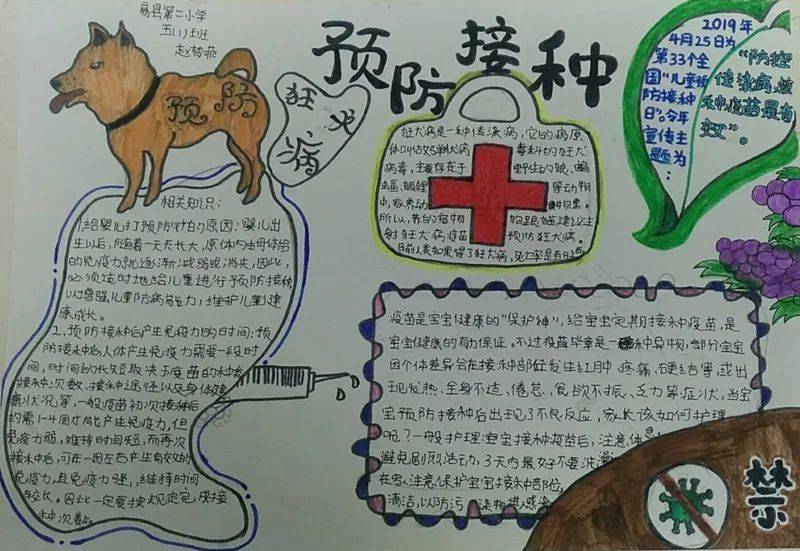 易县第二小学
五(1)班
预防接种
预防
狂犬病
2019年
4月25日为
第33个全
国“儿童预
防接种
日”。今年
宣传主
题为:
“防控
传染病,接
种疫苗最有
效”。
狂犬病是一种传染病,它的病原
体叫做弹状病毒科的狂犬
病毒,主要存在于野生的狼、蝙
蝠、狐狸等动物
中,家养动物里。
所以,养的宠物狗跟猫建议注
射狂犬病疫苗预防狂犬病。
目前人类如果得了狂犬病,死亡率是百分百
相关知识:
1.给婴儿打预防针的原因:婴儿出
生以后,随着一天天长大,原体内由母体给
的免疫力就逐渐减弱或消失,因此,
必须适时地给儿童进行预防接种
以增强儿童防病能力,维护儿童健
康成长。
2、预防接种后产生免疫力的时间:预
防接种后人体产生免疫力需要一段时
间,时间的长短取决于疫苗的种类
接种次数、接种途径以及身体健
康状况等,一般疫苗初次接种后
约需1-4周才能产生免疫力,但
免疫力弱,维持时间短,而再次
接种后,可在一周左右产生有效的
免疫力,且免疫力强,维持时间
较长。因此一定要按规定完成接
种次数。
疫苗是宝宝健康的“保护神”,给宝宝定期接种疫苗,是
宝宝健康的有力保证。不过疫苗毕竟是一种异物,部分宝宝
因个体差异会在接种部位发生红肿、疼痛、硬结等,或出
现发热、全身不适、倦怠、食欲不振、乏力等症状,当宝
宝预防接种后出现了不良反应,家长该如何护理
呢?一般护理:宝宝接种疫苗后,注意休息
避免剧烈活动,3天内最好不要洗澡
在家注意保护宝宝接种部位,
清洁,以防污染物进感染
禁